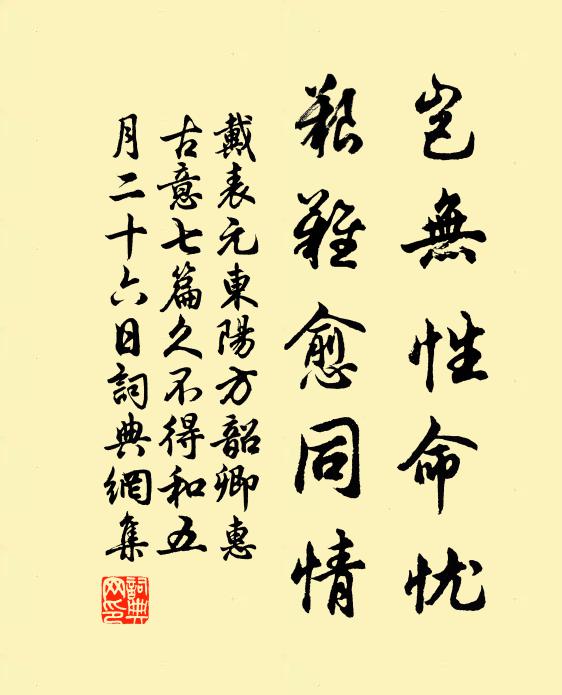 豈無性命忧
艱難愈同情
戴表元東陽方韶卿惠
古意七篇久不得和五
月二十六日詞典網集
詞典网印